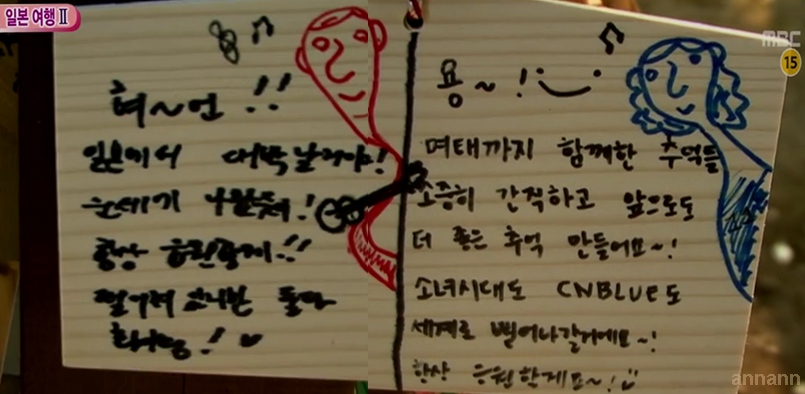 일본 여행 II
혀~언 !!
일본에서 대박날꺼야!
항상 응원할게!!
떨어져 있지만 둘다
화이팅!
MBC
15
용~!
여태까지 함께한 추억들
소중히 간직하고 앞으로도
더 좋은 추억 만들어요~!
소녀시대도 CNBLUE도
세계로 뻗어나갈거에요~!
항상 응원할게요~!
annann